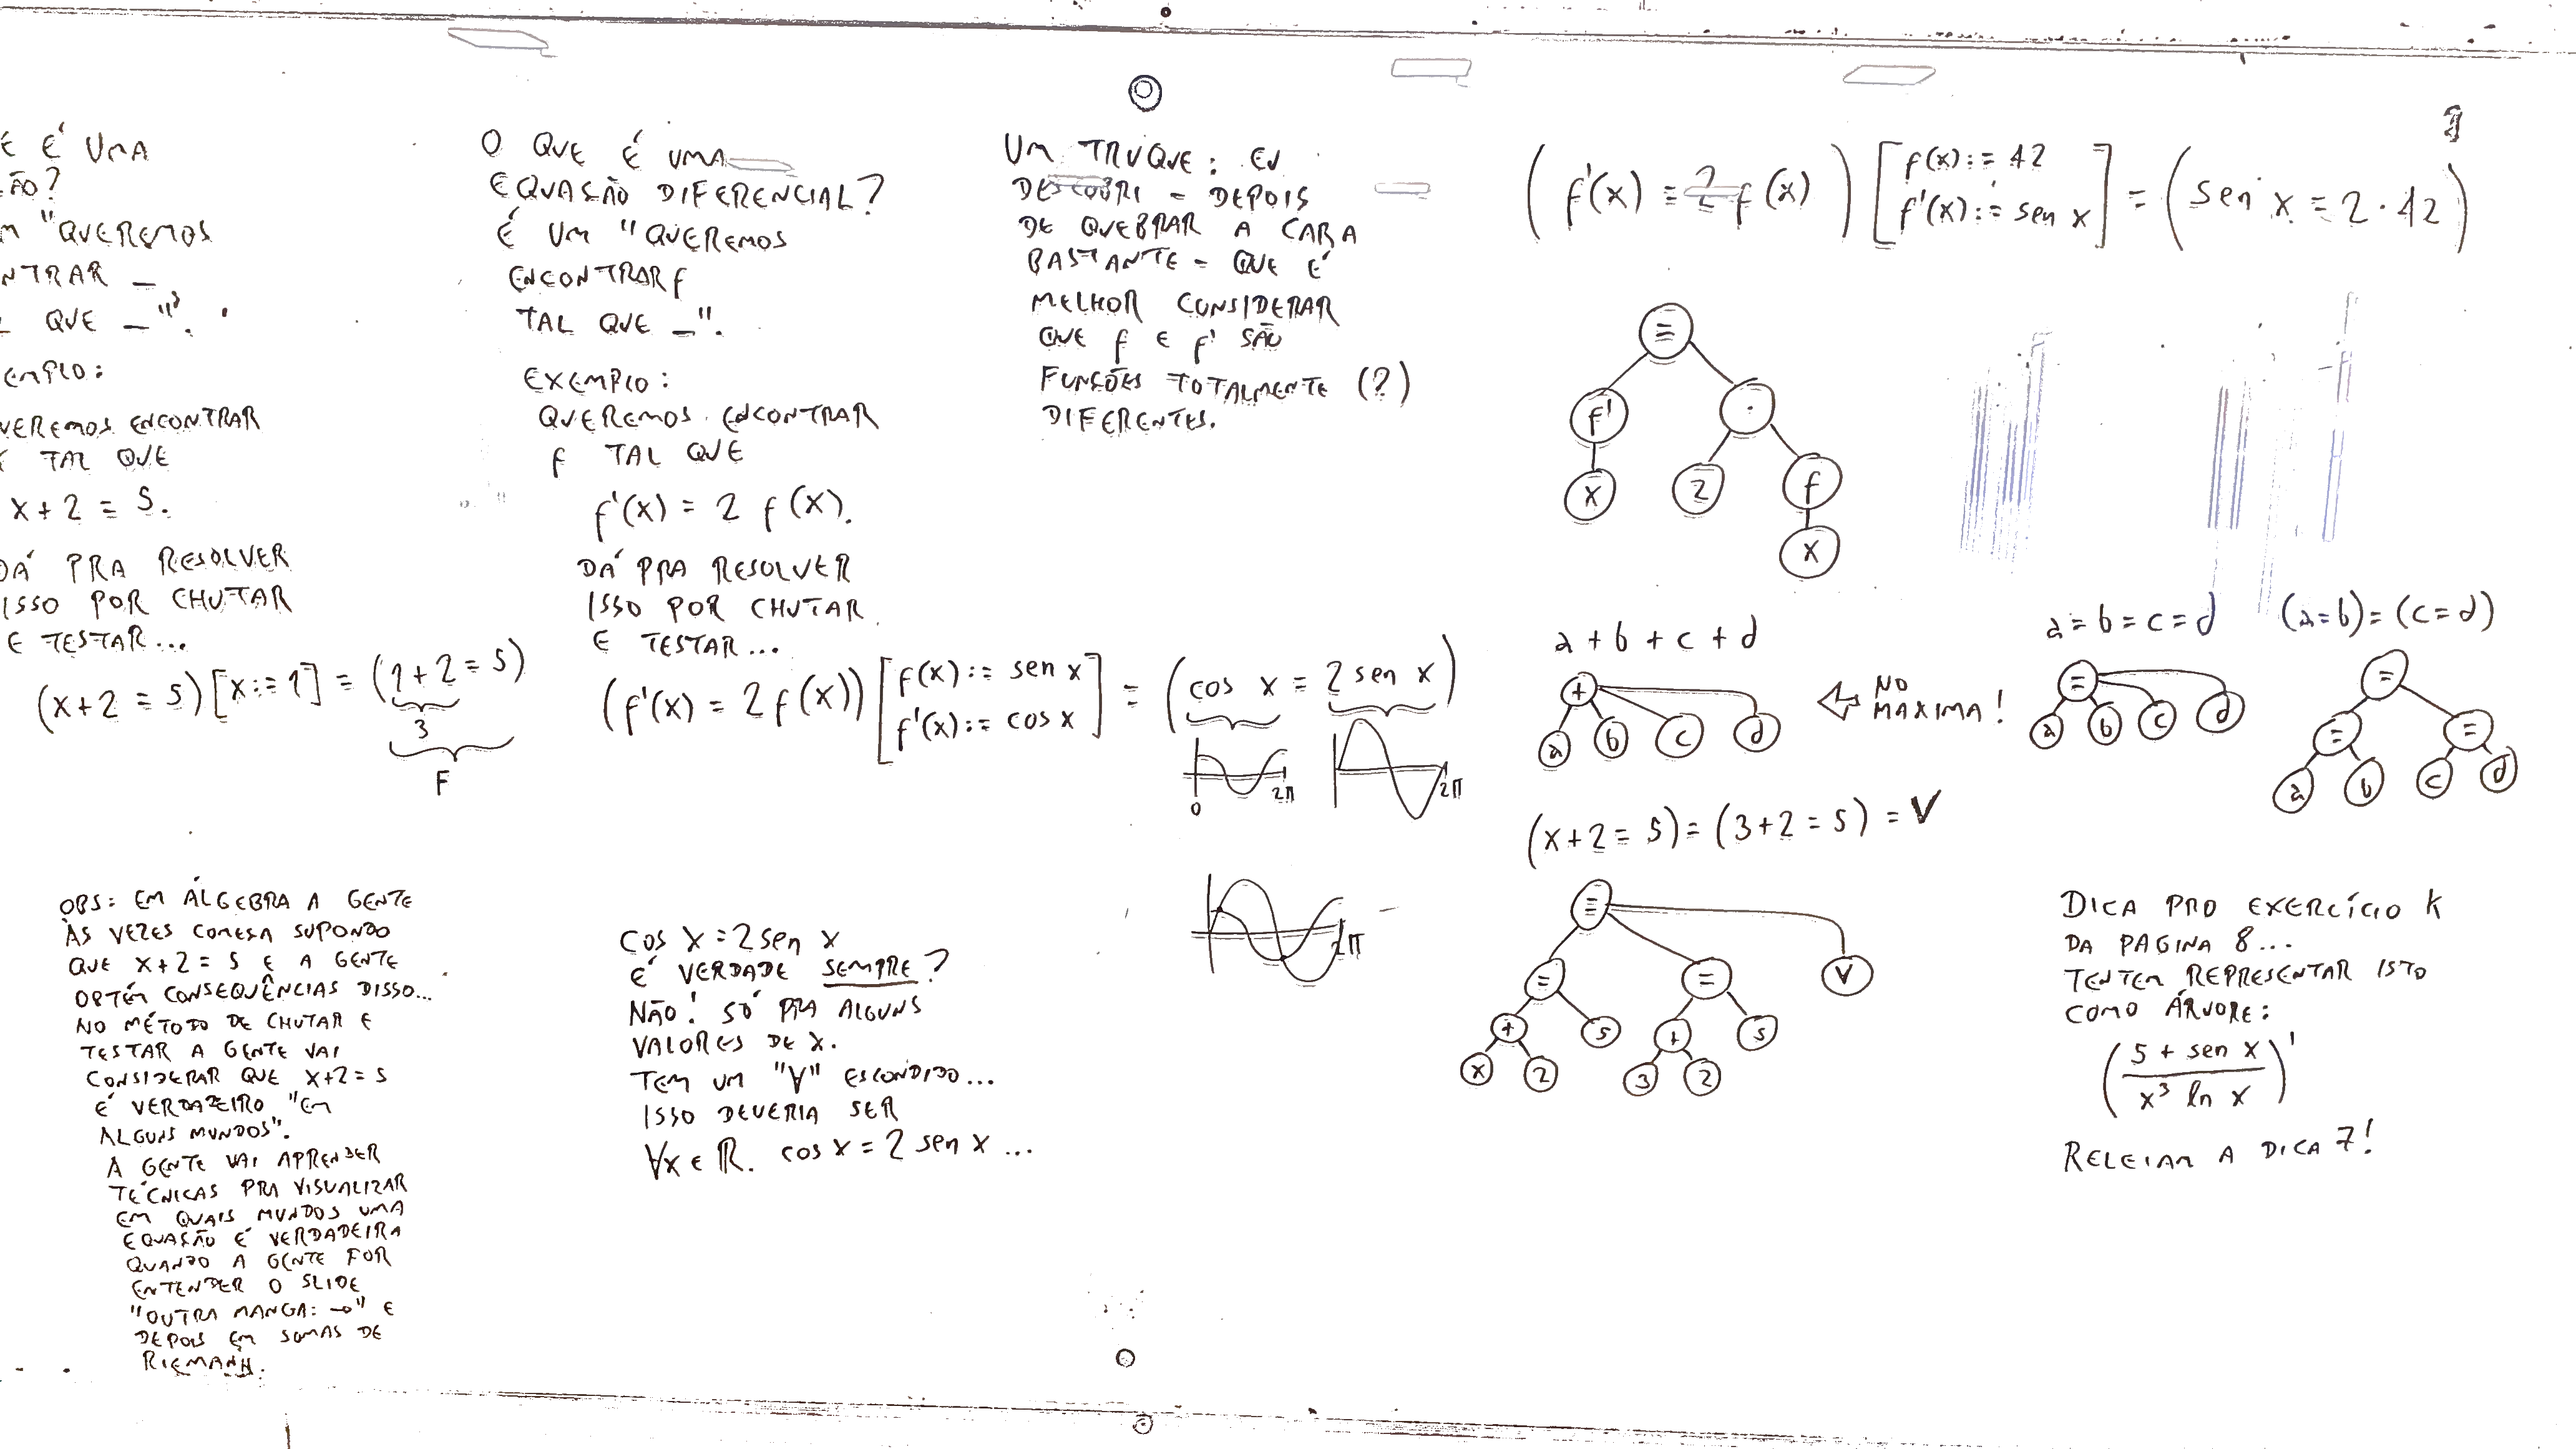 E É UMA
ÃO?
M "QUEREMOS
NTRAR _
QUE _".
EMPLO:
UEREMOS ENCONTRAR
TAL QUE
x+2 = 5.
DÁ PRA RESOLVER
ISSO POR CHUTAR
E TESTAR...
(x+2 = 5)[x:=1] = (1+2 = 5)
3
F
OBS: EM ÁLGEBRA A GENTE
ÀS VEZES COMEÇA SUPONDO
QUE x+2=5 E A GENTE
OBTÉM CONSEQUÊNCIAS DISSO...
NO MÉTODO DE CHUTAR E
TESTAR A GENTE VAI
CONSIDERAR QUE x+2=5
É VERDADEIRO "EM
ALGUNS MUNDOS".
A GENTE VAI APRENDER
TÉCNICAS PRA VISUALIZAR
EM QUAIS MUNDOS UMA
EQUAÇÃO É VERDADEIRA
QUANDO A GENTE FOR
ENTENDER O SLIDE
"OUTRA MANGA: →" E
DEPOIS EM SOMAS DE
RIEMANN.
O QUE É UMA
EQUAÇÃO DIFERENCIAL?
É UM "QUEREMOS
ENCONTRAR f
TAL QUE _".
EXEMPLO:
QUEREMOS ENCONTRAR
f TAL QUE
f'(x) = 2 f(x).
DÁ PRA RESOLVER
ISSO POR CHUTAR
E TESTAR...
(f'(x) = 2f(x)) [f(x):= sen x
f'(x):= cos x] = (cos x = 2 sen x)
0 2π 2π
2π
COS x = 2 sen x
É VERDADE SEMPRE?
NÃO! SÓ PRA ALGUNS
VALORES DE x.
TEM UM "∀" ESCONDIDO...
ISSO DEVERIA SER
∀x∈ℝ. cos x = 2 sen x ...
UM TRUQUE: EU
DESCOBRI - DEPOIS
DE QUEBRAR A CARA
BASTANTE - QUE É
MELHOR CONSIDERAR
QUE f E f' SÃO
FUNÇÕES TOTALMENTE (?)
DIFERENTES.
(f'(x) = 2 f(x)) [f(x):= 42
f'(x):= sen x] = (sen x = 2·42)
=
f' ·
x 2 f
x
a + b + c + d
+
a b c d
⇐ NO
MAXIMA!
a = b = c = d
=
a b c d
(a=b) = (c=d)
=
= =
a b c d
(x+2 = 5) = (3+2 = 5) = V
=
= = V
+ 5 + 5
x 2 3 2
DICA PRO EXERCÍCIO K
DA PÁGINA 8...
TENTEM REPRESENTAR ISTO
COMO ÁRVORE:
(5 + sen x / x³ ln x)'
RELEIAM A DICA 7!